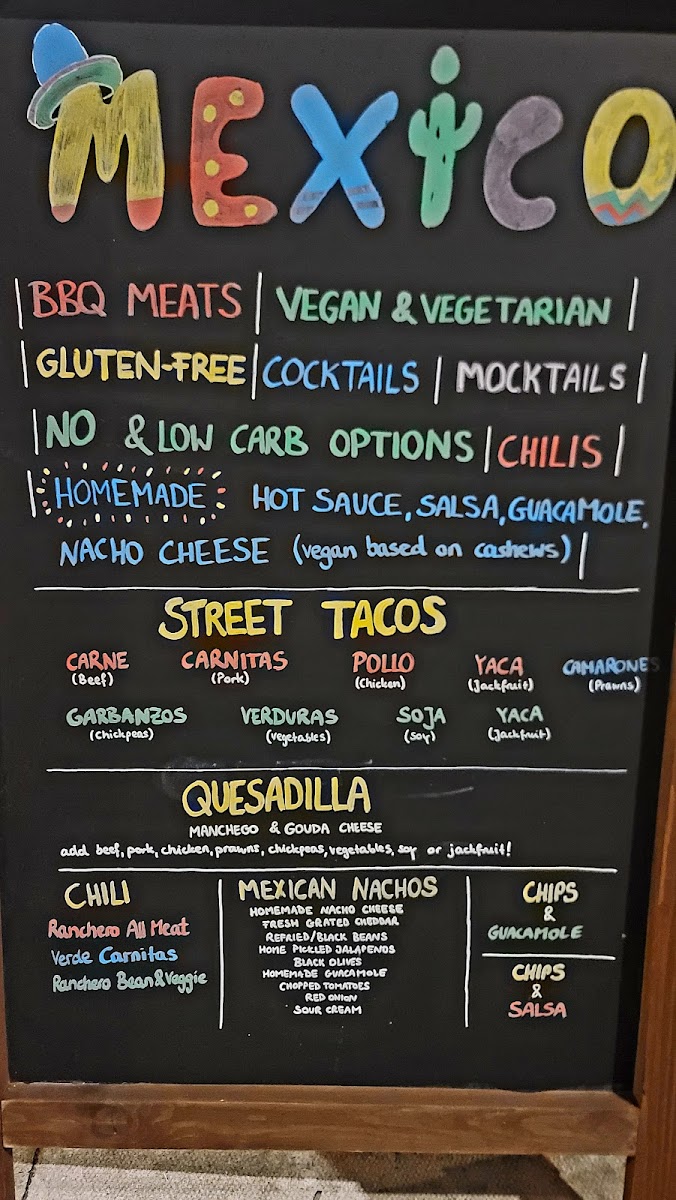 MEXICO
|BBQ MEATS| VEGAN & VEGETARIAN |
|GLUTEN-FREE|COCKTAILS | MOCKTAILS |
|NO & LOW CARB OPTIONS | CHILIS |
|HOMEMADE HOT SAUCE, SALSA, GUACAMOLE,
NACHO CHEESE (vegan based on cashews) |
STREET TACOS
CARNE CARNITAS POLLO YACA CAMARONES
(Beef) (Pork) (Chicken) (Jackfruit) (Prawns)
GARBANZOS VERDURAS SOJA YACA
(Chickpeas) (Vegetables) (Soy) (Jackfruit)
QUESADILLA
MANCHEGO & GOUDA CHEESE
add beef, pork, chicken, prawns, chickpeas, vegetables, soy or jackfruit!
CHILI
Ranchero All Meat
Verde Carnitas
Ranchero Bean & Veggie
MEXICAN NACHOS
HOMEMADE NACHO CHEESE
FRESH GRATED CHEDDAR
REFRIED/BLACK BEANS
HOME PICKLED JALAPENOS
BLACK OLIVES
HOMEMADE GUACAMOLE
CHOPPED TOMATOES
RED ONION
SOUR CREAM
CHIPS
&
GUACAMOLE
CHIPS
&
SALSA